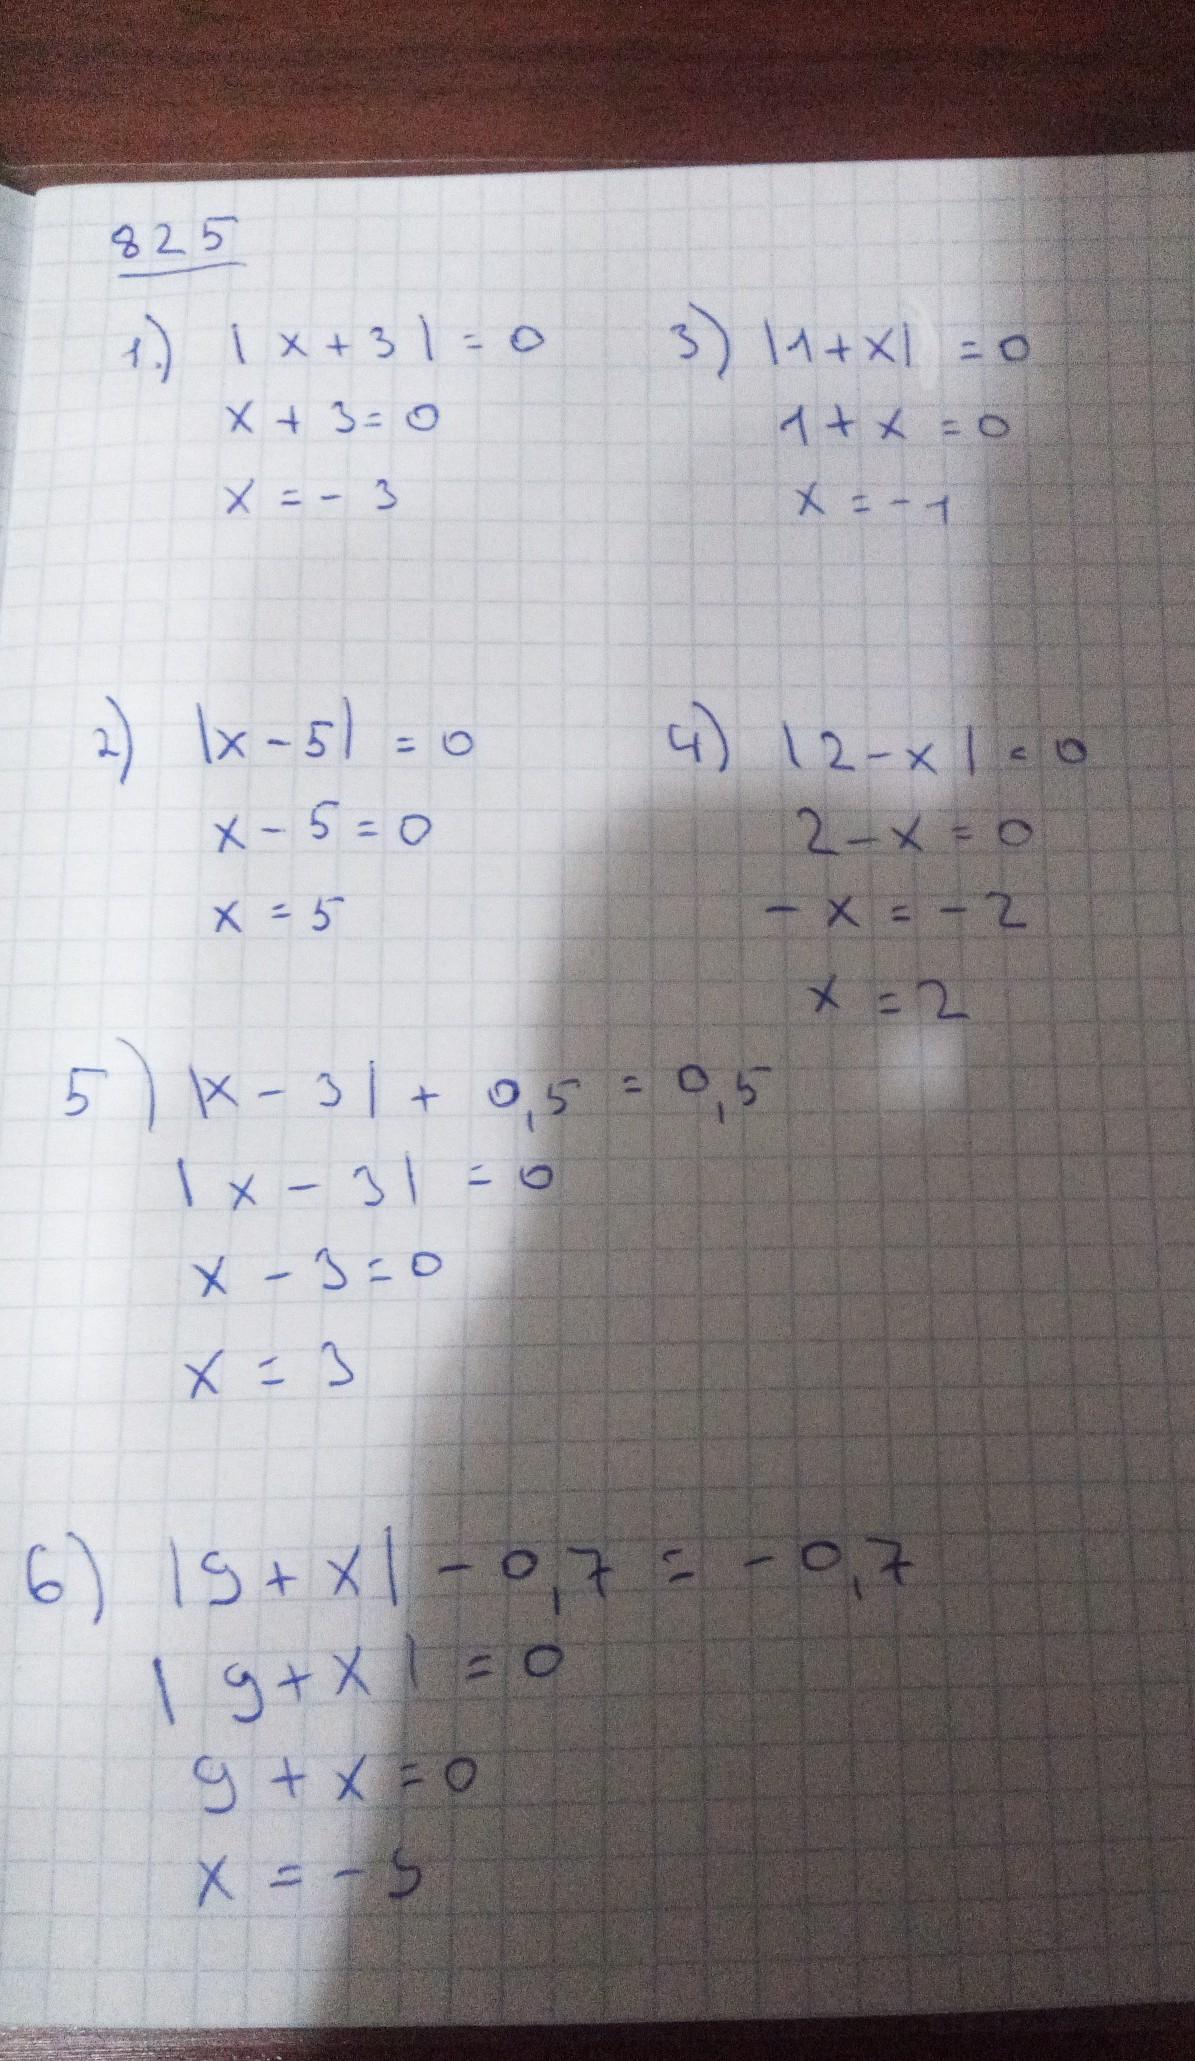 825
1.) |x+3|=0
x+3=0
x=-3
3) |1+x|=0
1+x=0
x=-1
2) |x-5|=0
x-5=0
x=5
4) |2-x|=0
2-x=0
-x=-2
x=2
5) |x-3|+0,5=0,5
|x-3|=0
x-3=0
x=3
6) |9+x|-0,7=-0,7
|9+x|=0
9+x=0
x=-9